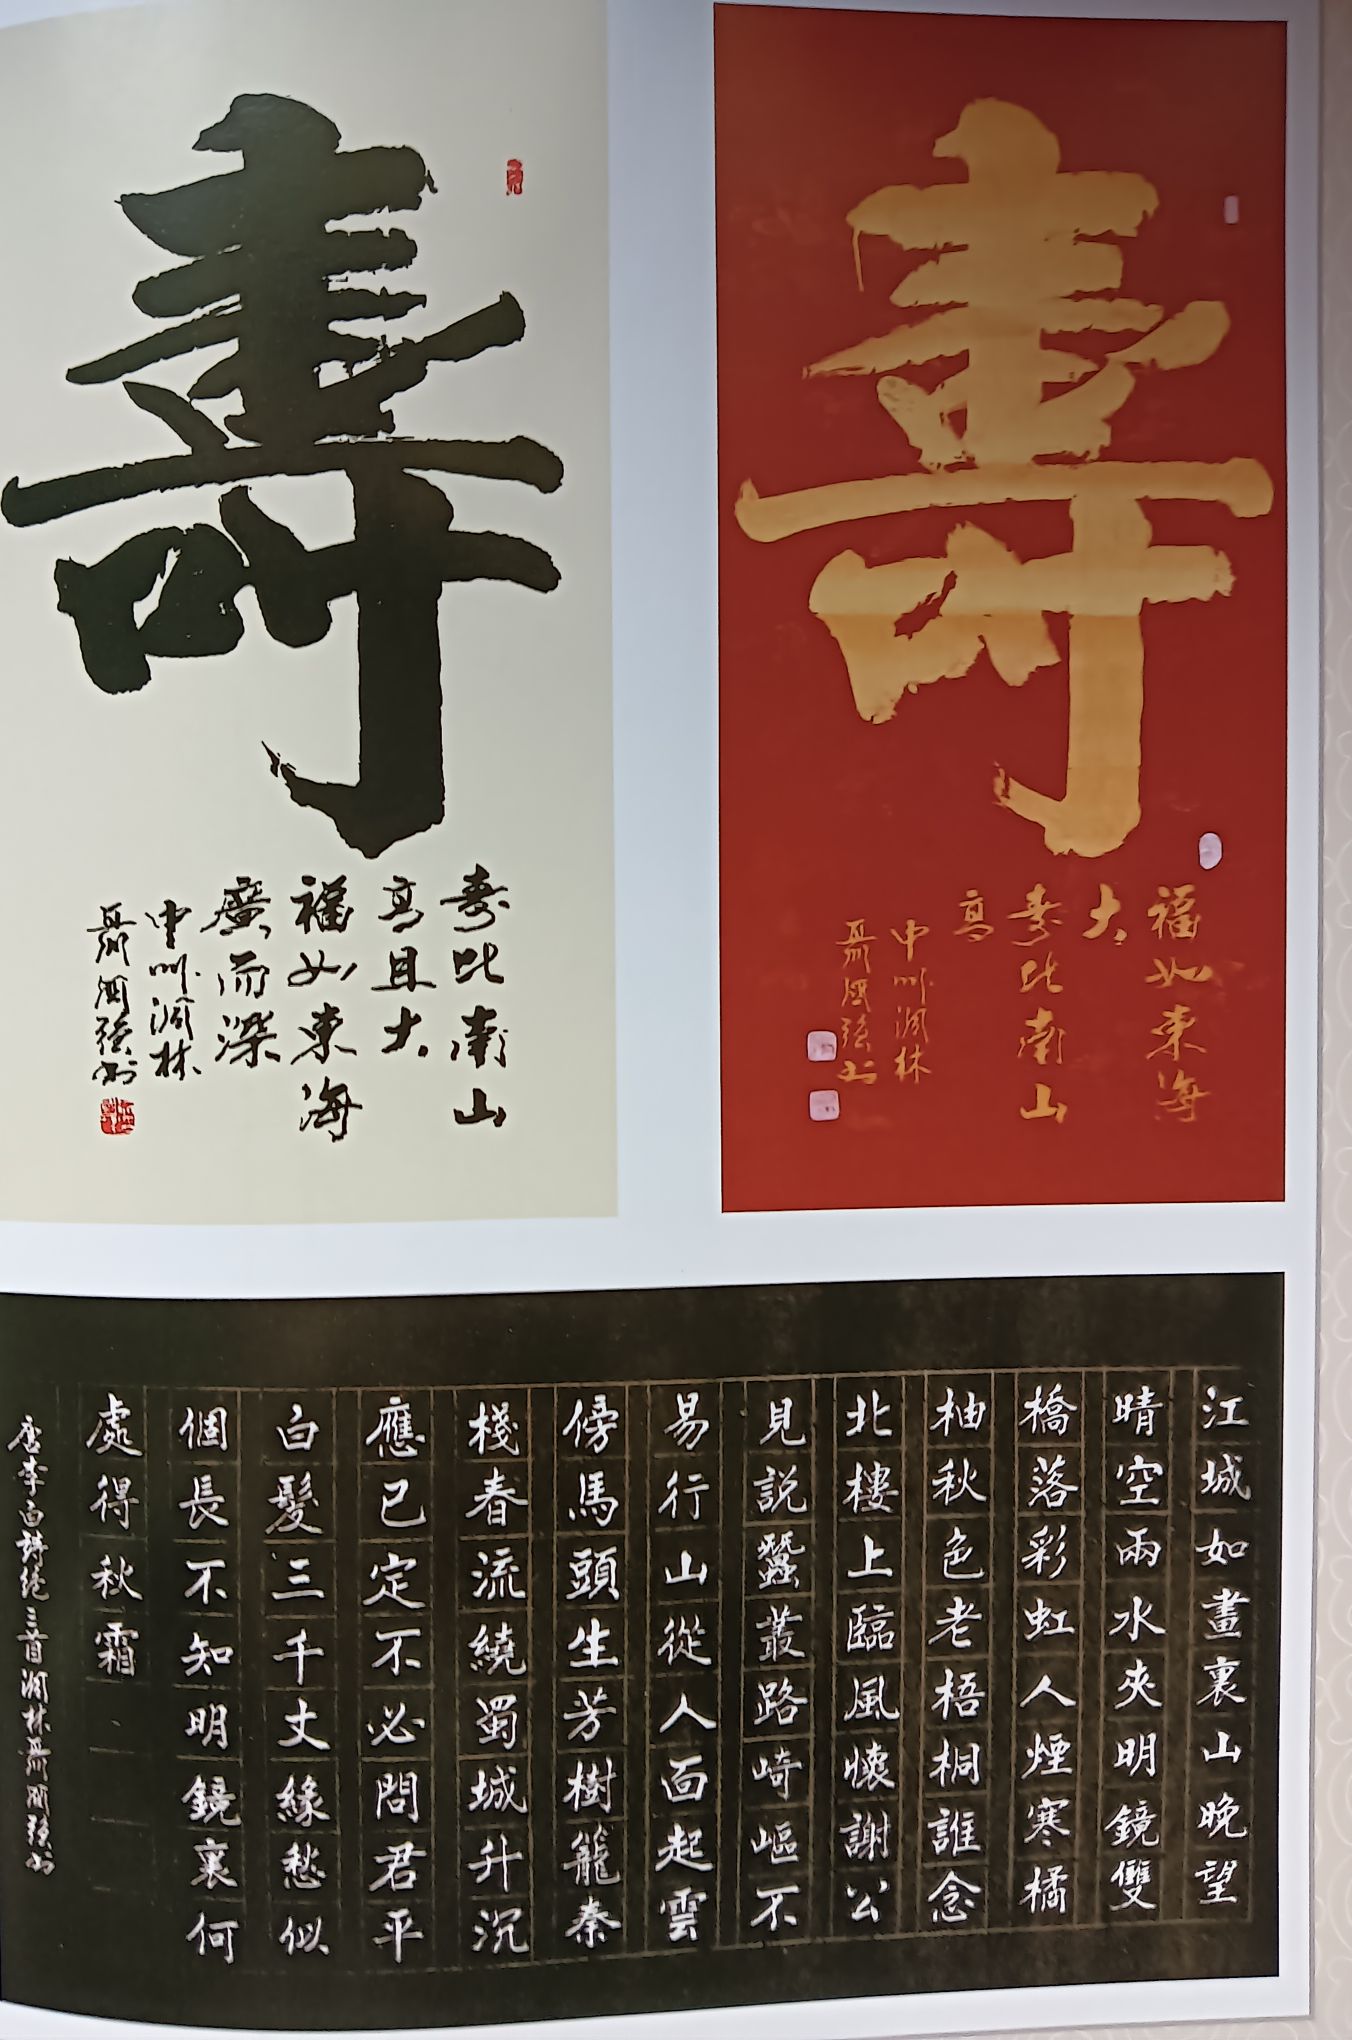 壽
壽比南山
高且大
福如東海
廣而深
中州潤林
聶潤強書
壽
福如東海
大
壽比南山
高
中州潤林
聶潤強書
江城如畫裏山晚望
晴空兩水夾明鏡雙
橋落彩虹人煙寒橘
柚秋色老梧桐誰念
北樓上臨風懷謝公
見説蠶叢路崎嶇不
易行山從人面起雲
傍馬頭生芳樹籠秦
棧春流繞蜀城升沉
應已定不必問君平
白髮三千丈緣愁似
個長不知明鏡裏何
處得秋霜
唐李白詩三首潤林聶潤強書